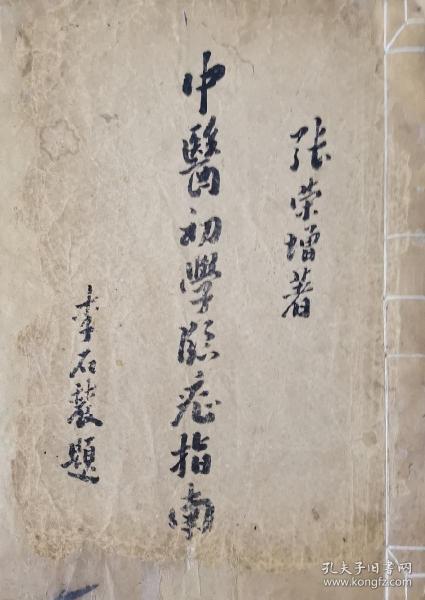 張荣增著
中醫初學臨症指南
李石□題
孔夫子旧书网
www.kongfz.com